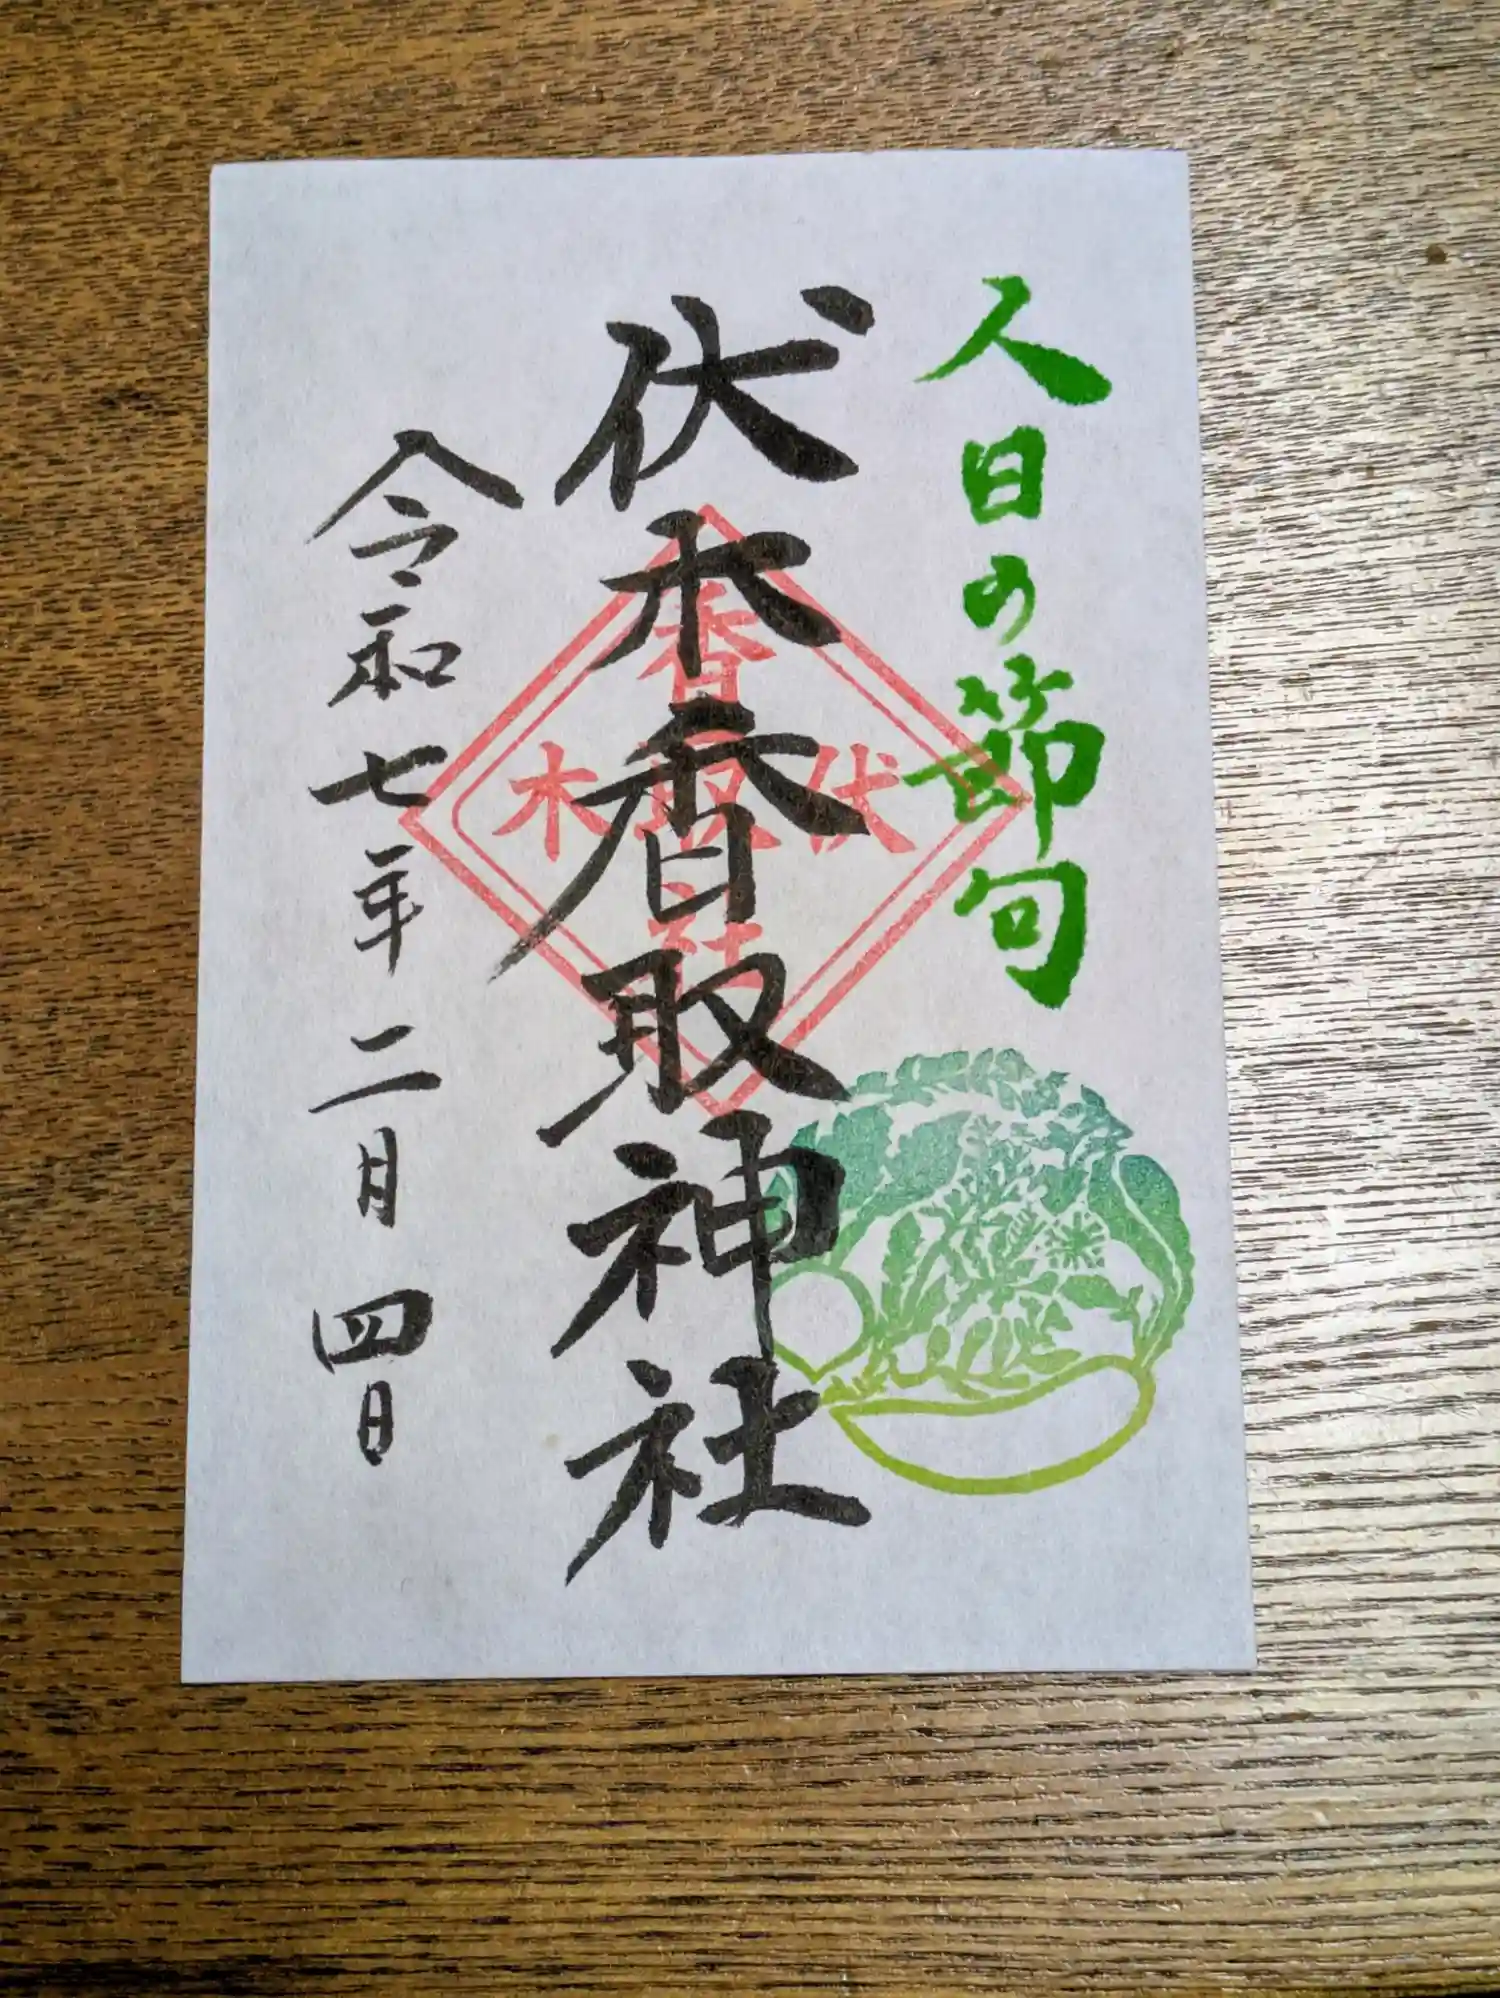 人日の節句
伏木香取神社
香
伏取木
社
令和七年二月四日